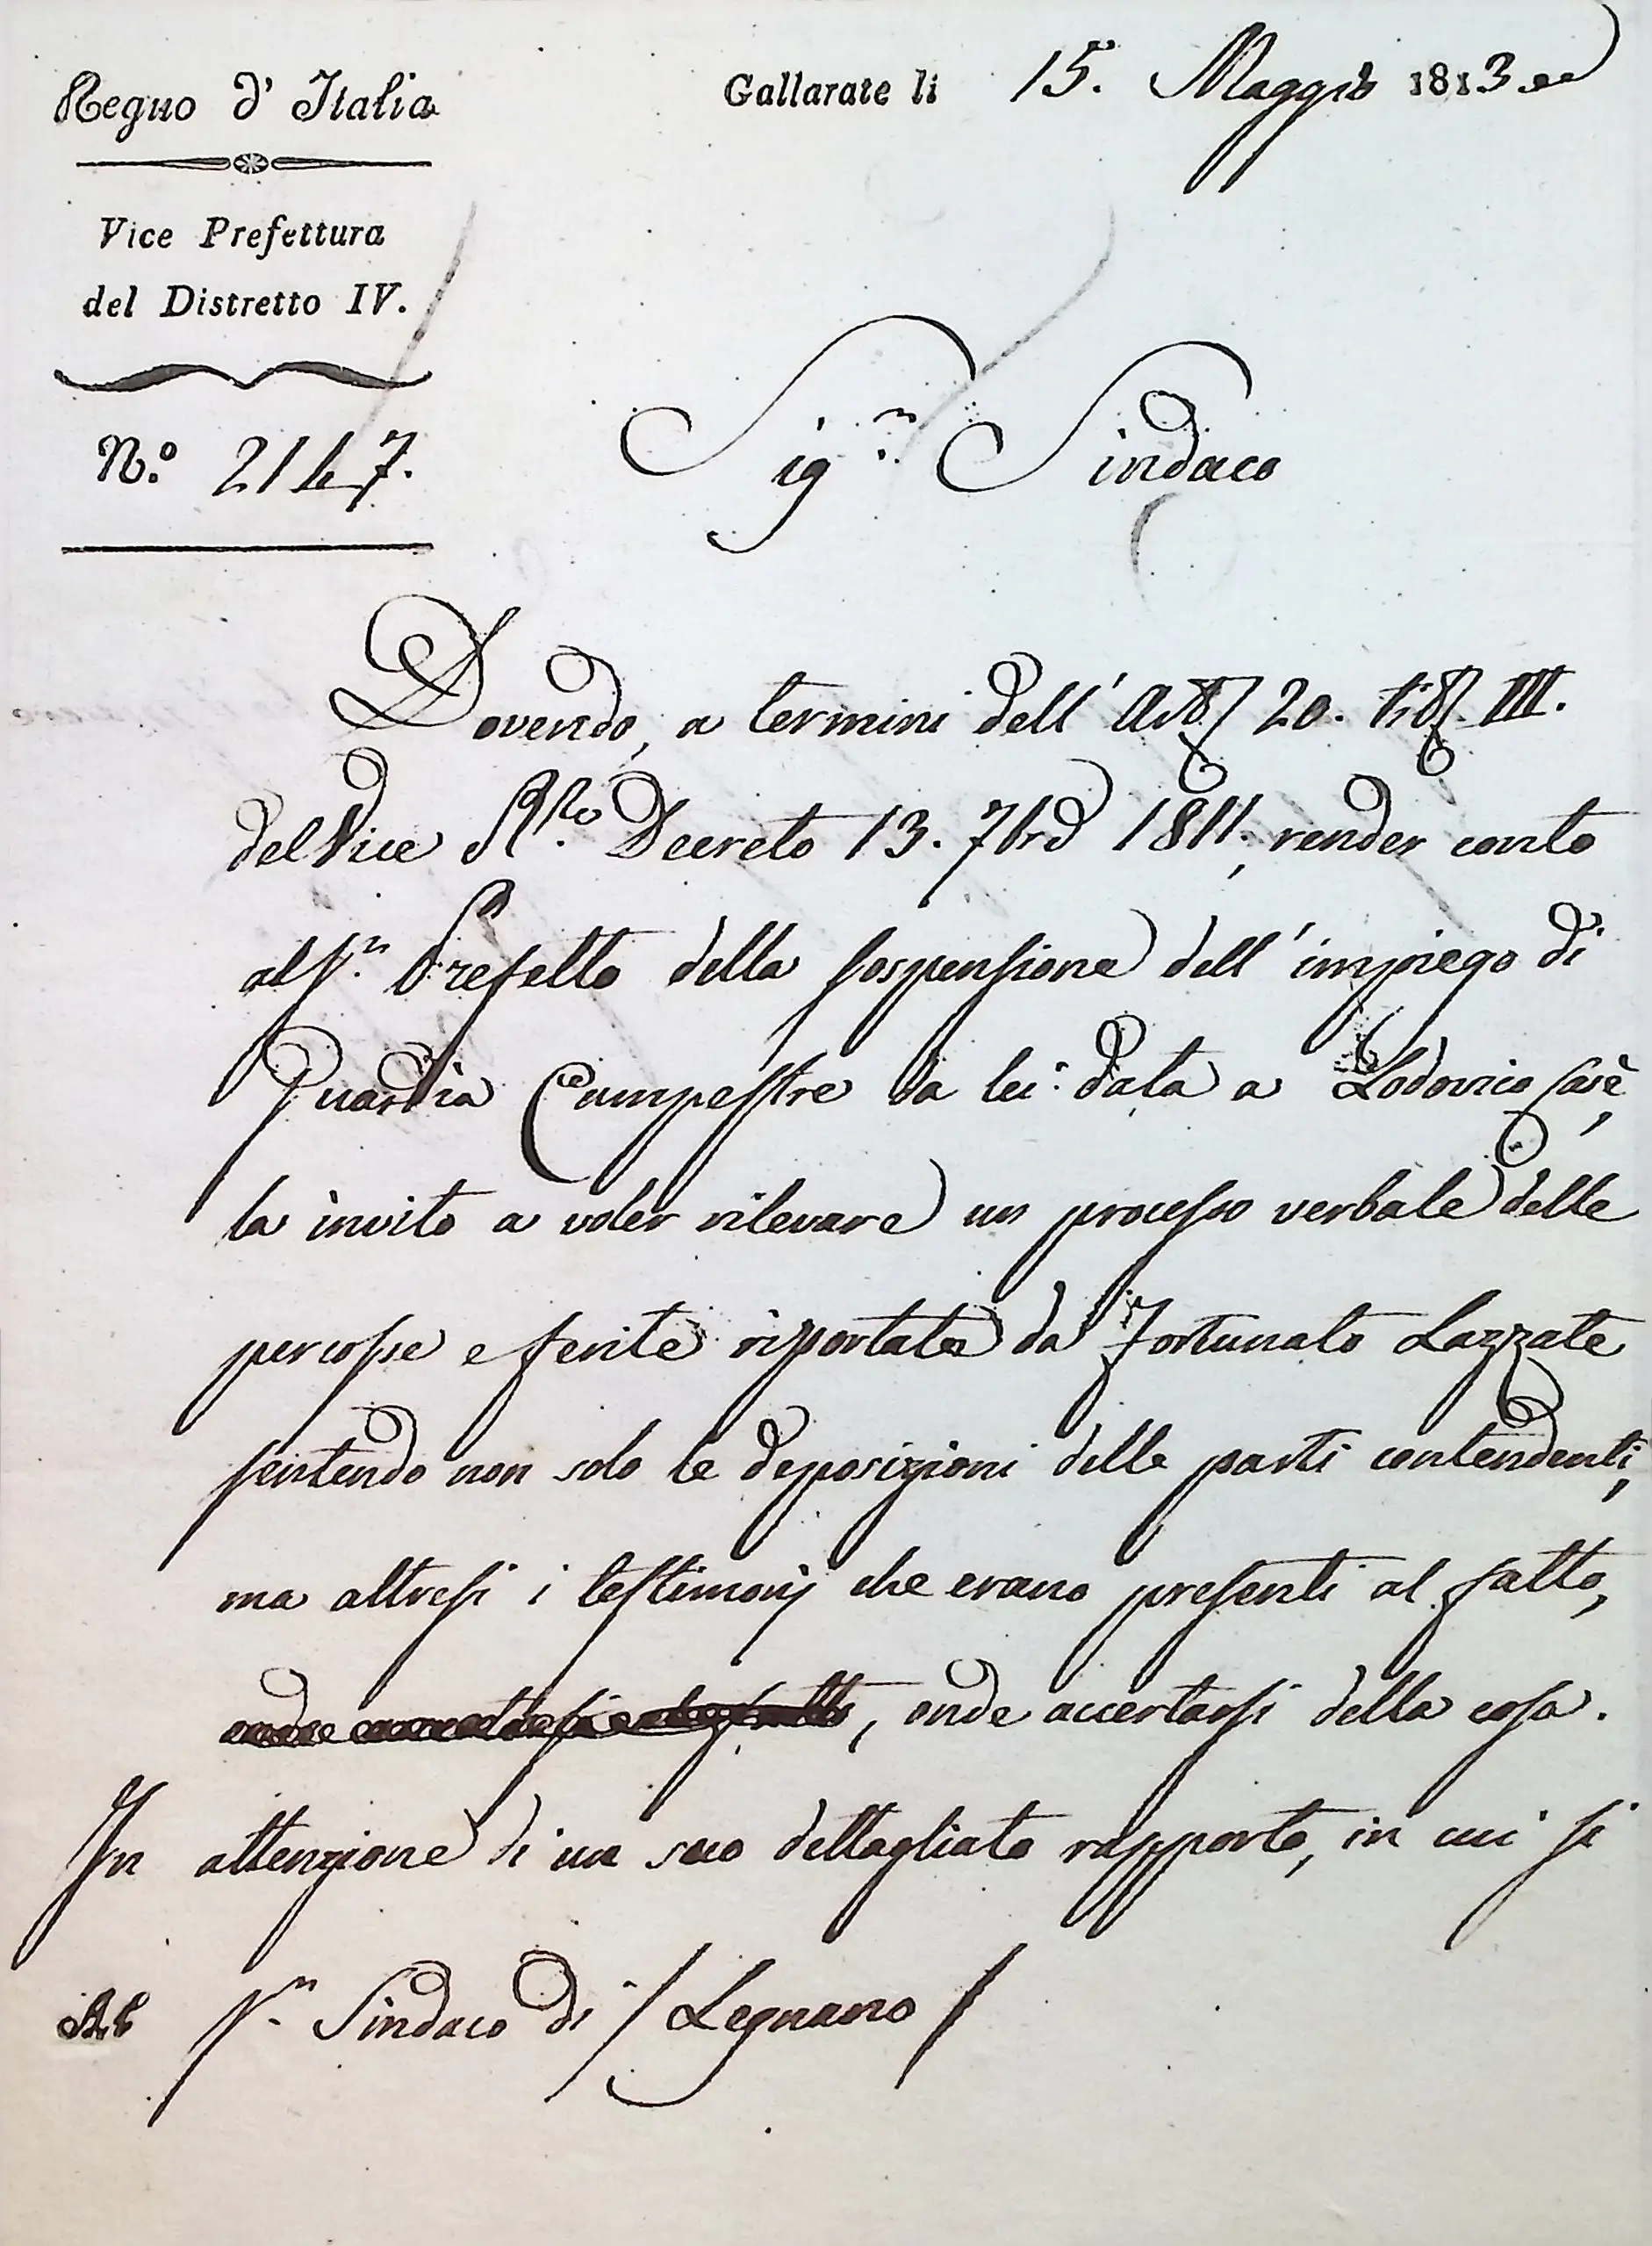 Regno d' Italia
Gallarate li 15. Maggio 1813
Vice Prefettura
del Distretto IV.
N.º 2147.
Sig.r Sindaco
Dovendo, a termini dell' Art. 20. tit. III.
del Vice R.le Decreto 13. 7brè 1811., render conto
al S.r Prefetto della sospensione dell' impiego di
Guardia Campestre da lei data a Lodovico
la invito a voler rilevare un processo verbale delle
percosse e ferite riportate da Fortunato Lazzate
sentendo non solo le deposizioni delle parti contendenti,
ma altresi i testimonj che erano presenti al fatto,
, onde accertarsi della cosa.
In attenzione di un suo dettagliato rapporto, in cui si
S.r Sindaco di / Legnano /